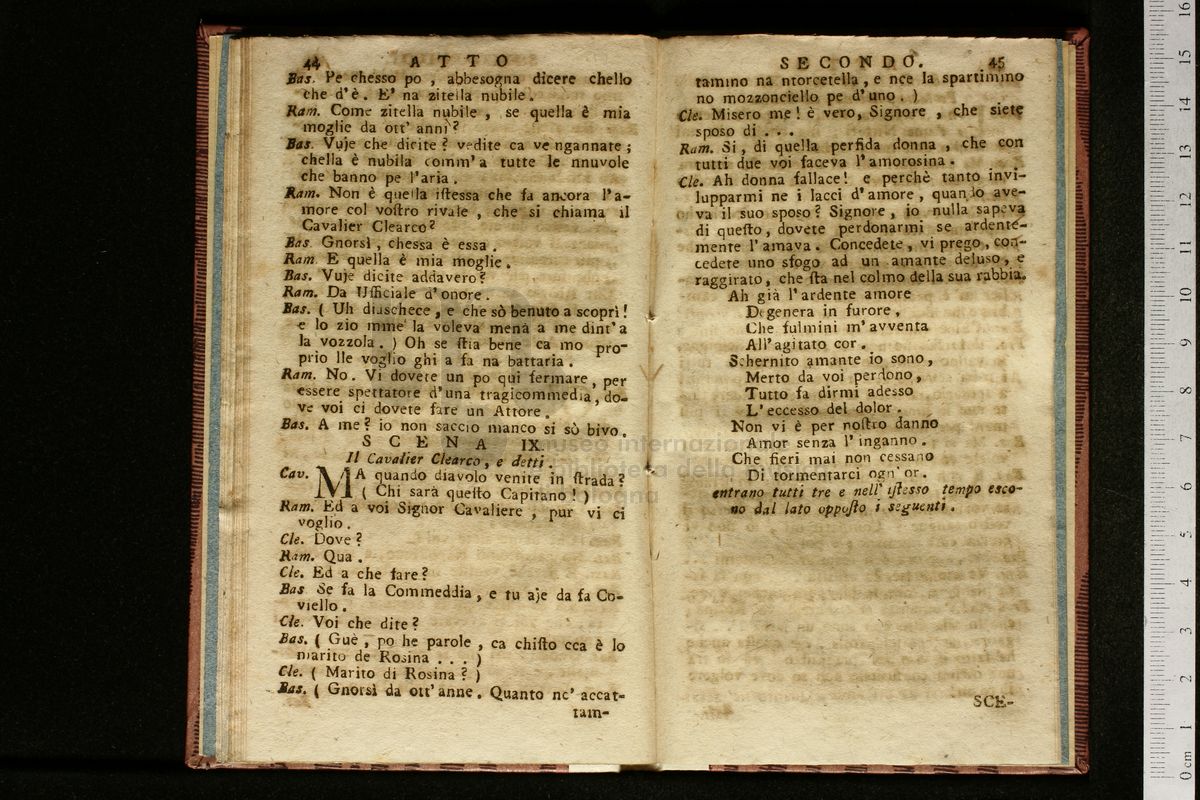 44 ATTO
Bas. Pe chesso po , abbesogna dicere chello
che d'è. E' na zitella nubile.
Ram. Come zitella nubile , se quella è mia
moglie da ott' anni?
Bas. Vuje che dicite? vedite ca ve ngannate;
chella è nubila comm'a tutte le nnuvole
che banno pe l'aria.
Ram. Non è quella iſtessa che fa ancora l'a-
more col voſtro rivale , che si chiama il
Cavalier Clearco?
Bas Gnorsì, chessa è essa.
Ram. E quella è mia moglie.
Bas. Vuje dicite addavero?
Ram. Da Ufficiale d'onore.
Bas. ( Uh diaschece, e che sò benuto a scopri!
e lo zio mme la voleva menà a me dint'a
la vozzola. ) Oh se ſtia bene ca mo pro-
prio lle voglio ghi a fa na battaria.
Ram. No. Vi dovete un po qui fermare, per
essere spettatore d'una tragicommedia, do-
ve voi ci dovete fare un Attore.
Bas. A me? io non saccio manco si sò bivo.
SCENA IX.
Il Cavalier Clearco, e detti.
Cav. MA quando diavolo venite in ſtrada?
( Chi sarà queſto Capitano! )
Ram. Ed a voi Signor Cavaliere , pur vi ci
voglio.
Cle. Dove?
Ram. Qua.
Cle. Ed a che fare?
Bas Se fa la Commeddia, e tu aje da fa Co-
viello.
Cle. Voi che dite?
Bas. ( Guè, po he parole , ca chiſto cca è lo
marito de Rosina . . . )
Cle. ( Marito di Rosina? )
Bas. ( Gnorsì da ott'anne. Quanto nc' accat-
tam-
SECONDO. 45
tamino na ntorcetella, e nce la spartimmo
no mozzonciello pe d'uno. )
Cle. Misero me! è vero, Signore , che siete
sposo di . . .
Ram. Si, di quella perfida donna , che con
tutti due voi faceva l'amorosina.
Cle. Ah donna fallace! e perchè tanto invi-
lupparmi ne i lacci d'amore, quando ave-
va il suo sposo? Signore, io nulla sapeva
di queſto, dovete perdonarmi se ardente-
mente l'amava. Concedete, vi prego, con-
cedete uno sfogo ad un amante deluso, e
raggirato, che ſta nel colmo della sua rabbia.
Ah già l'ardente amore
Degenera in furore,
Che fulmini m'avventa
All'agitato cor.
Schernito amante io sono,
Merto da voi perdono,
Tutto fa dirmi adesso
L'eccesso del dolor.
Non vi è per noſtro danno
Amor senza l'inganno.
Che fieri mai non cessano
Di tormentarci ogn'or.
entrano tutti tre e nell' iſtesso tempo esco-
no dal lato oppoſto i seguenti.
SCE-